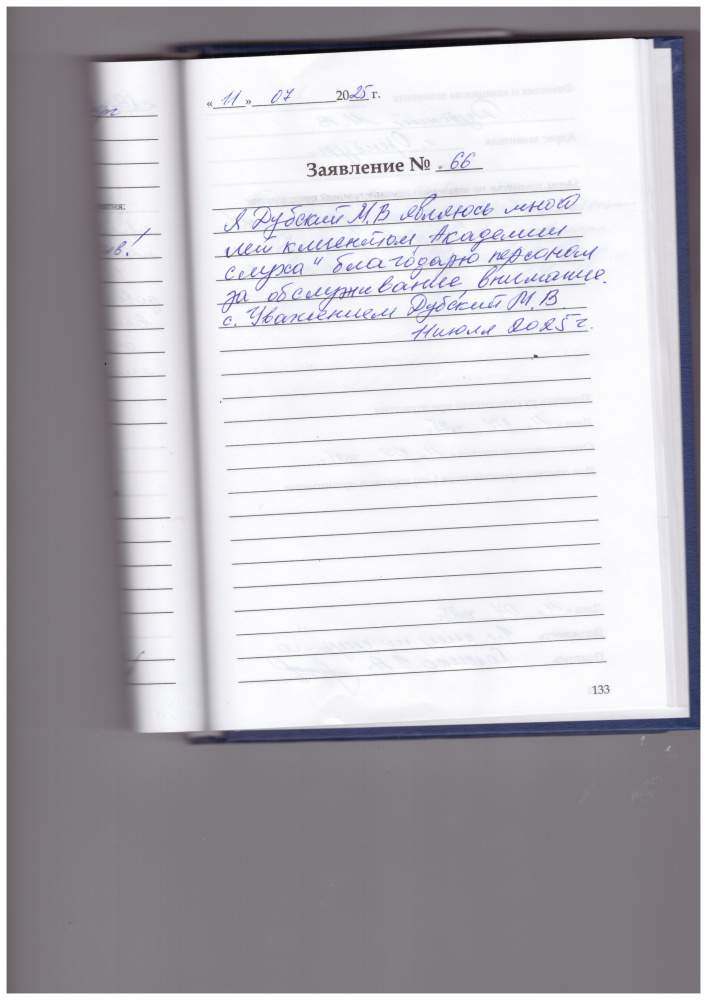 « 11 » 07 2025 г.
Заявление № 66
Я Дубский М В являюсь много
лет клиентом „Академии
слуха“ благодарю персонал
за обслуживание, внимание.
с. Уважением Дубский М. В.
11 июля 2025 г.
133